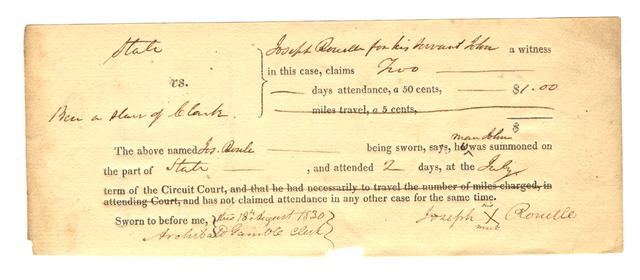 State
vs.
Ben a slave of Clark.
Joseph Rouelle for his servant John a witness
in this case, claims Two
days attendance, a 50 cents, $1.00
miles travel, a 5 cents,
$
man John
The above named Jos. Roule being sworn, says, he was summoned on
the part of State, and attended 2 days, at the July
term of the Circuit Court, and that he had necessarily to travel the number of miles charged, in
attending Court, and has not claimed attendance in any other case for the same time.
Sworn to before me, this 18th August 1830
Archibald Gamble Clerk
his
Joseph X Rouelle
mark